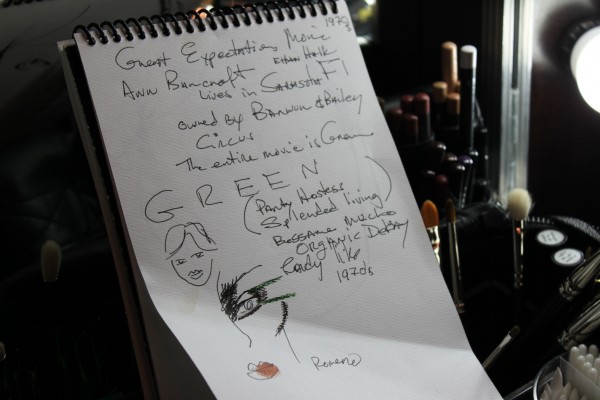 1970s
Great Expectations Movie
Ethan Hawk
Ann Bancroft
Lives in Sarasota Fl
owned by Barnum & Bailey
Circus
The entire movie is Green
GREEN
(Party Hostess
Splended living)
Bessame Mucho
Organic Debby
Rendy like
1970s